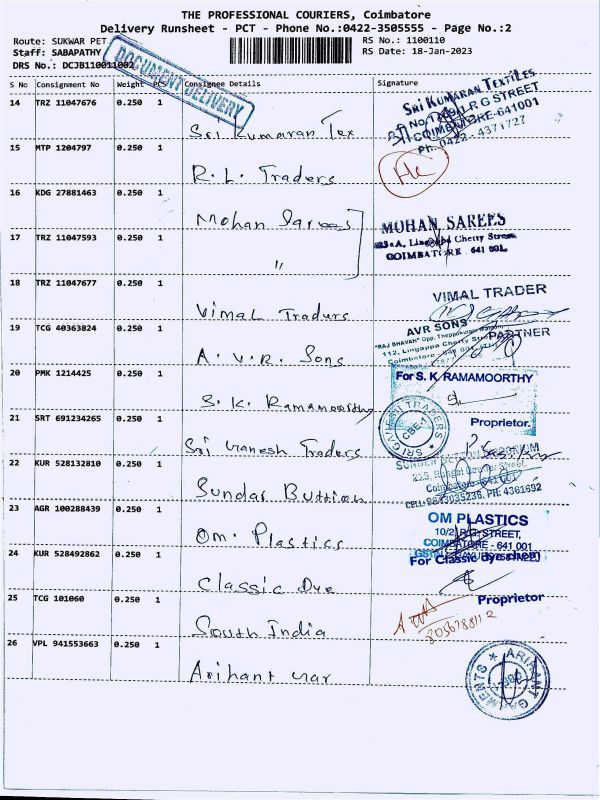 THE PROFESSIONAL COURIERS, Coimbatore
Delivery Runsheet - PCT - Phone No.:0422-3505555 - Page No.:2
Route: SUKWAR PET
RS No.: 1100110
Staff: SABAPATHY
RS Date: 18-Jan-2023
DRS No.: DCJB110011002
DOCUMENT DELIVERY
S No Consignment No Weight PCS Consignee Details Signature
14 TRZ 11047676 0.250 1 Sri Kumaran Tex
SRI KUMARAN TEXTILES
R G STREET
COIMBATORE-641001
Ph: 0422-4371727
15 MTP 1204797 0.250 1 R. L. Traders
16 KDG 27881463 0.250 1 Mohan Sarees
MOHAN SAREES
Chetty Street
COIMBATORE 641 001.
17 TRZ 11047593 0.250 1 "
18 TRZ 11047677 0.250 1 Vimal Traders
VIMAL TRADER
PARTNER
19 TCG 40363824 0.250 1 A. V. R. Sons
AVR SONS
"RAJ BHAVAN" Opp.
112, Lingappa Chetty Street
Coimbatore - 641 001
20 PMK 1214425 0.250 1 S. K. Ramamoorthy
For S. K RAMAMOORTHY
Proprietor.
21 SRT 691234265 0.250 1 Sri Ganesh Traders
SRI GANESH TRADERS
CBE-1
22 KUR 528132810 0.250 1 Sundar Buttion
Coimbatore 641 001
PH: 4361692
23 AGR 100288439 0.250 1 Om. Plastics
OM PLASTICS
STREET,
COIMBATORE - 641 001
24 KUR 528492862 0.250 1 Classic Dye
For Classic dye chem
Proprietor
25 TCG 101060 0.250 1 South India
26 VPL 941553663 0.250 1 Arihant Gar
ARIHANT GARMENTS